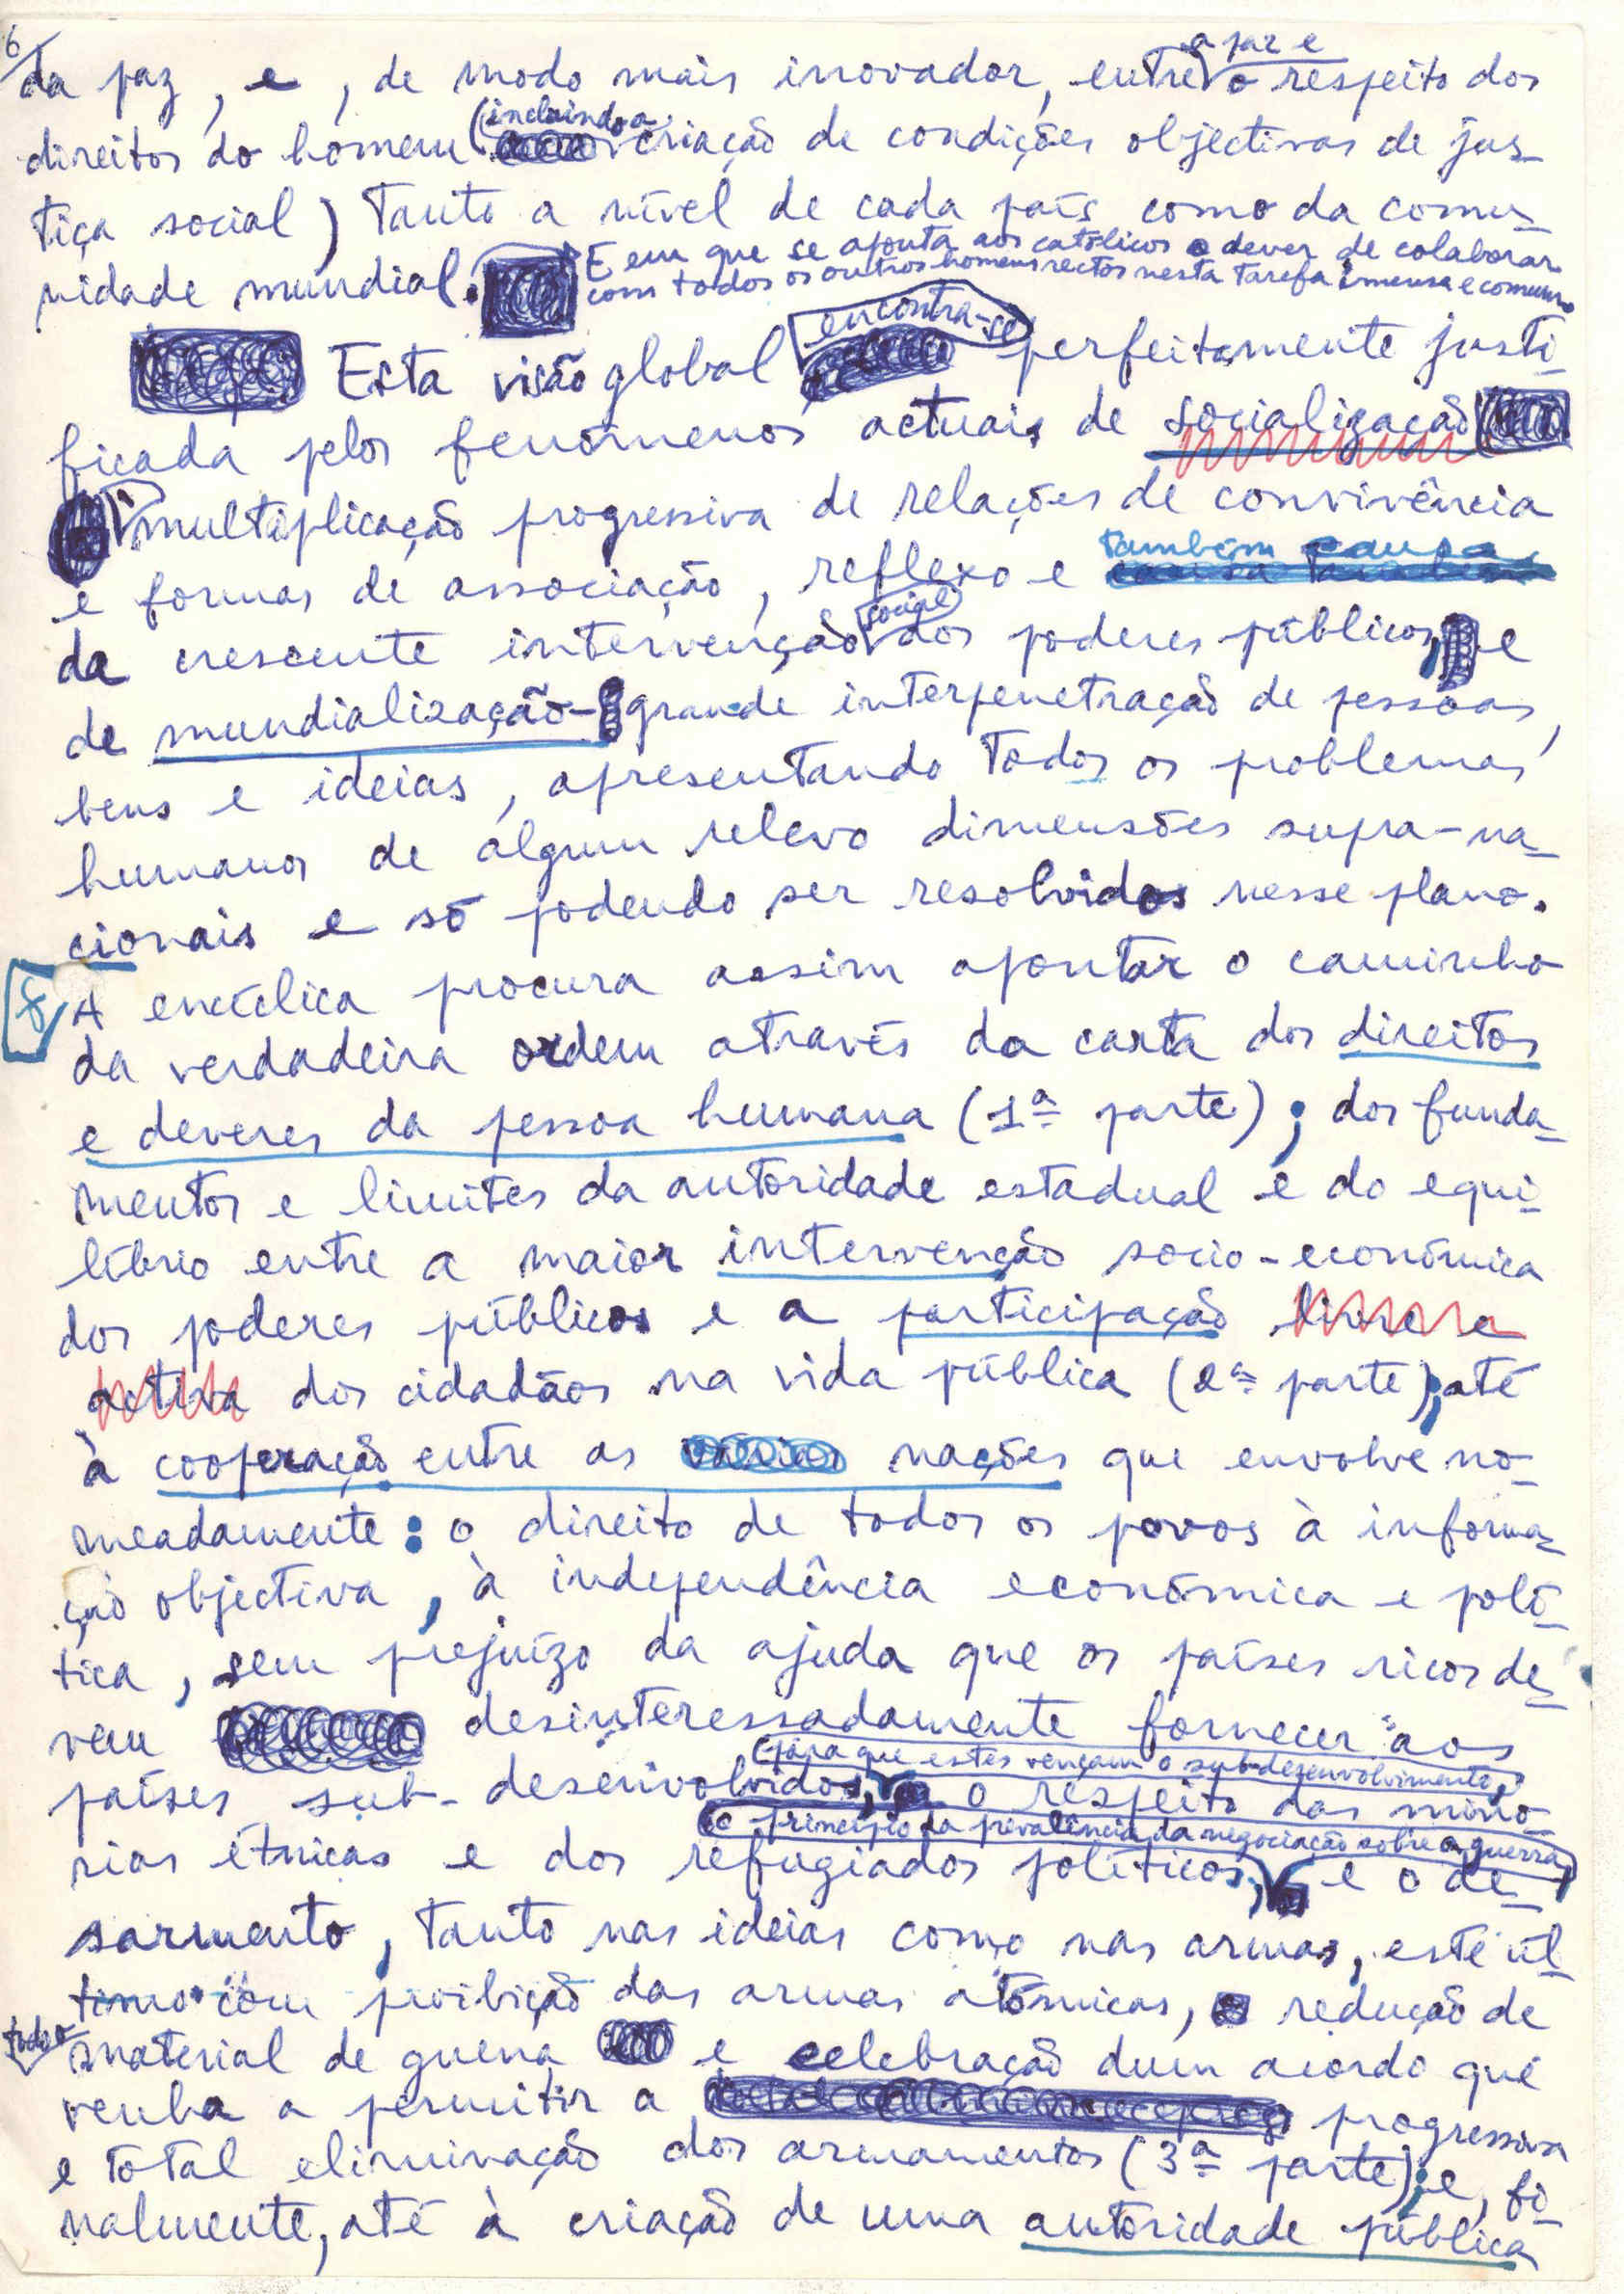 6
da paz, e, de modo mais inovador, entre a paz e o respeito dos
direitos do homem (incluindo a criação de condições objectivas de jus-
tiça social) tanto a nível de cada país como da comu-
nidade mundial. E em que se aponta aos católicos o dever de colaborar
com todos os outros homens rectos nesta tarefa imensa e comum.
Esta visão global encontra-se perfeitamente justi-
ficada pelos fenómenos actuais de socialização
multiplicação progressiva de relações de convivência
e formas de associação, reflexo e também causa
da crescente intervenção social dos poderes públicos, e
de mundialização - grande interpenetração de pessoas,
bens e ideias, apresentando todos os problemas
humanos de algum relevo dimensões supra-na-
cionais e só podendo ser resolvidos nesse plano.
8 A encíclica procura assim apontar o caminho
da verdadeira ordem através da carta dos direitos
e deveres da pessoa humana (1ª parte); dos funda-
mentos e limites da autoridade estadual e do equi-
líbrio entre a maior intervenção socio-económica
dos poderes públicos e a participação livre e
activa dos cidadãos na vida pública (2ª parte); até
à cooperação entre as várias nações que envolve no-
meadamente: o direito de todos os povos à informa-
ção objectiva, à independência económica e polí-
tica, sem prejuízo da ajuda que os países ricos de-
vem desinteressadamente fornecer aos
países sub-desenvolvidos, para que estes vençam o subdesenvolvimento, o respeito das mino-
rias étnicas e dos refugiados políticos, o princípio da prevalência da negociação sobre a guerra, e o de-
sarmento, tanto nas ideias como nas armas, este úl-
timo com proibição das armas atómicas, redução de
todo o material de guerra e celebração dum acordo que
venha a permitir a progressiva
e total eliminação dos armamentos (3ª parte); e, fi-
nalmente, até à criação de uma autoridade pública